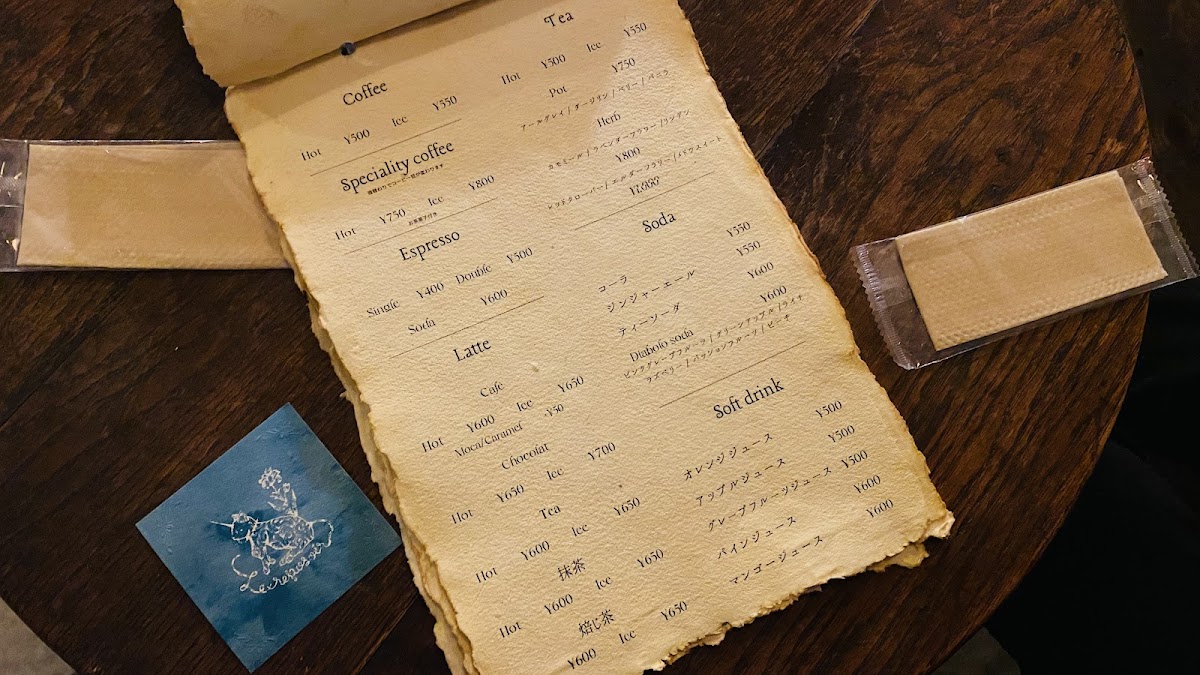 Coffee
Hot ¥500 Ice ¥550
Speciality coffee
Hot ¥750 Ice ¥800
お茶菓子付き
Espresso
Single ¥400 Double ¥500
Soda ¥600
Latte
Cafe
Hot ¥600 Ice ¥650
Moca/Caramel +¥50
Chocolat
Hot ¥650 Ice ¥700
Tea
Hot ¥600 Ice ¥650
抹茶
Hot ¥600 Ice ¥650
焙じ茶
¥600 Ice ¥650
Tea
Hot ¥500 Ice ¥550
Pot ¥750
アールグレイ / ダージリン / ベリー / バニラ
Herb
カモミール / ラベンダーフラワー / リンデン
¥800
レッドクローバー / エルダーフラワー / メドウスイート
¥1,000
Soda
コーラ ¥550
ジンジャーエール ¥550
ティーソーダ ¥600
Diabolo soda ¥600
ピンクグレープフルーツ / グリーンアップル / ライチ
ラズベリー / パッションフルーツ / ピーチ
Soft drink
オレンジジュース ¥500
アップルジュース ¥500
グレープフルーツジュース ¥500
パインジュース ¥600
マンゴージュース ¥600